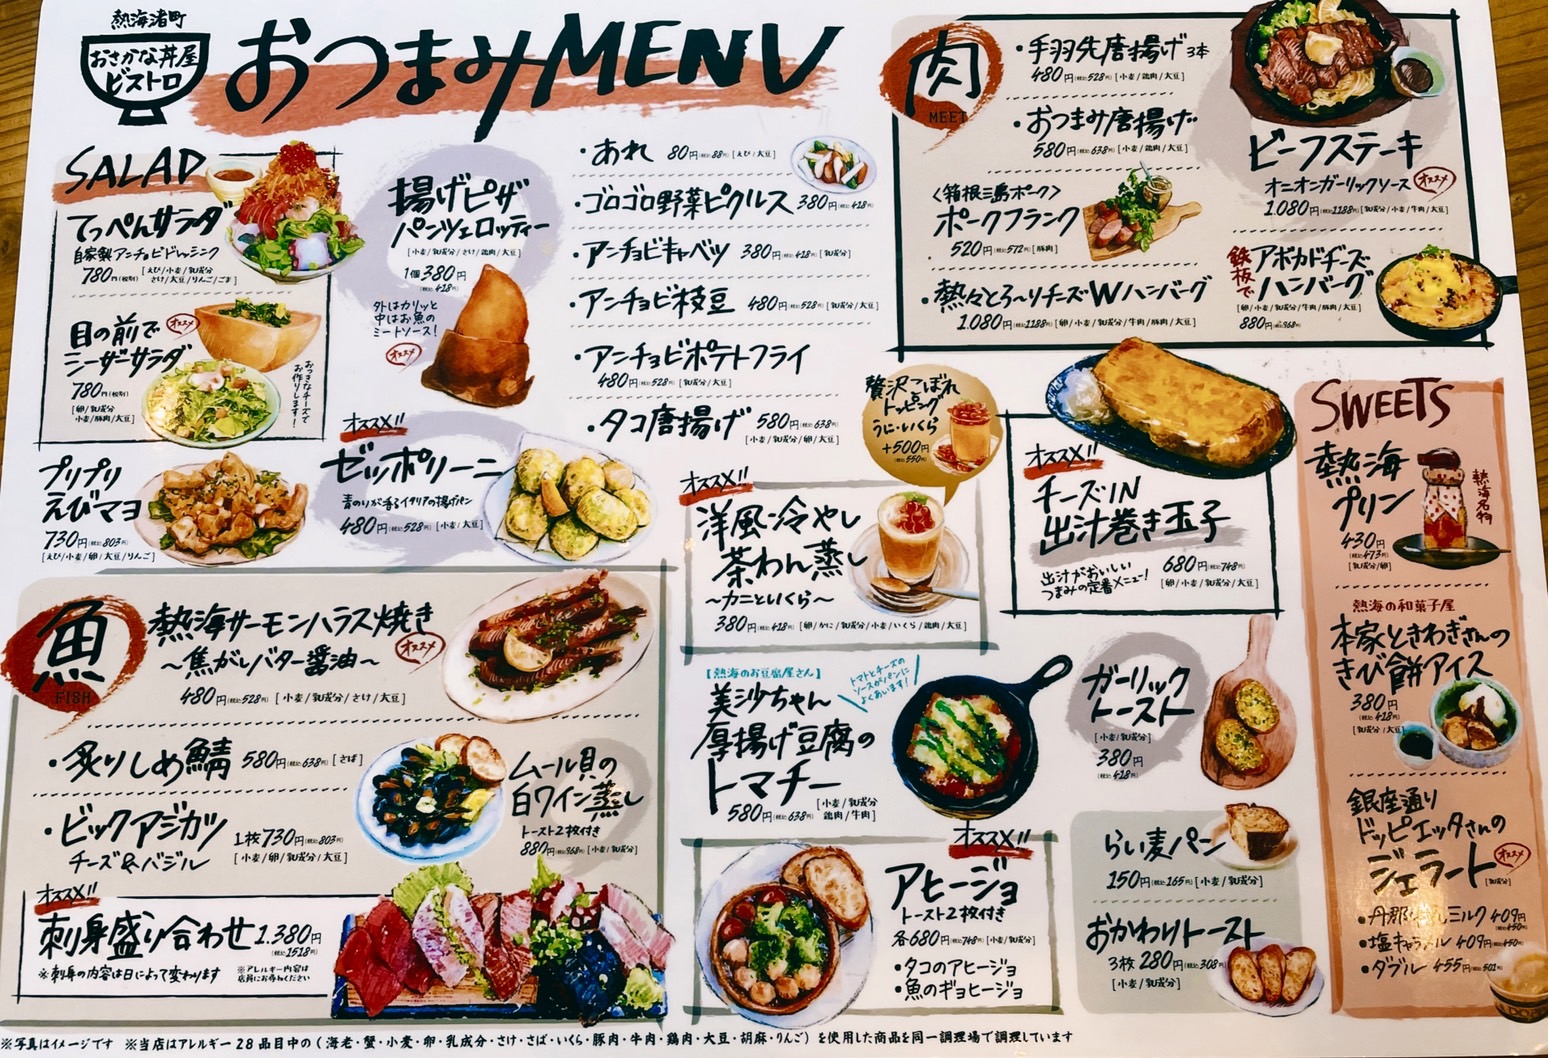 熱海渚町
おさかな丼屋
ビストロ
おつまみMENU
SALAD
てっぺんサラダ
自家製アンチョビドレッシング
780円(税別)
[えび/小麦/乳成分
さけ/大豆/りんご/ごま]
目の前で
シーザーサラダ
オススメ
780円(税別)
[卵/乳成分
小麦/豚肉/大豆]
おっきなチーズで
お作りします!
プリプリ
えびマヨ
730円(税込803円)
[えび/小麦/卵/大豆/りんご]
揚げピザ
パンツェロッティー
[小麦/乳成分/さけ/鶏肉/大豆]
1個380円
(税込418円)
外はカリッと
中はお魚の
ミートソース!
オススメ
オススメ!!
ゼッポリーニ
青のりが香るイタリアの揚げパン
480円(税込528円) [小麦/大豆]
・あれ 80円(税込88円) [えび/大豆]
・ゴロゴロ野菜ピクルス 380円(税込418円)
・アンチョビキャベツ 380円(税込418円) [乳成分]
・アンチョビ枝豆 480円(税込528円) [乳成分/大豆]
・アンチョビポテトフライ
480円(税込528円) [乳成分/大豆]
・タコ唐揚げ 580円(税込638円)
[小麦/乳成分/卵/大豆]
肉
MEET
・手羽先唐揚げ 3本
480円(税込528円) [小麦/鶏肉/大豆]
・おつまみ唐揚げ
580円(税込638円) [小麦/鶏肉/大豆]
<箱根三島ポーク>
ポークフランク
520円(税込572円) [豚肉]
・熱々とろ~りチーズWハンバーグ
1.080円(税込1188円) [卵/小麦/乳成分/牛肉/豚肉/大豆]
ビーフステーキ
オニオンガーリックソース
オススメ
1.080円(税込1188円) [乳成分/小麦/牛肉/大豆]
鉄板で
アボカドチーズ
ハンバーグ
[卵/乳成分/小麦/牛肉/豚肉/大豆]
880円(税込968円)
贅沢こぼれ
トッピング
うに・いくら
+500円
(税込550円)
オススメ!!
洋風・冷やし
茶わん蒸し
~カニといくら~
380円(税込418円) [卵/かに/乳成分/小麦/いくら/鶏肉/大豆]
オススメ!!
チーズIN
出汁巻き玉子
出汁がおいしい
つまみの定番メニュー!
680円(税込748円)
[卵/小麦/乳成分/大豆]
魚
FISH
熱海サーモンハラス焼き
~焦がしバター醤油~
オススメ
480円(税込528円) [小麦/乳成分/さけ/大豆]
・炙りしめ鯖 580円(税込638円) [さば]
・ビックアジカツ
チーズ&バジル
1枚730円(税込803円)
[小麦/卵/乳成分/大豆]
ムール貝の
白ワイン蒸し
トースト2枚付き
880円(税込968円) [小麦/乳成分]
オススメ!!
刺身盛り合わせ 1.380円
(税込1518円)
※刺身の内容は日によって変わります
※アレルギー内容は
店員にお尋ねください
【熱海のお豆腐屋さん】
美沙ちゃん
厚揚げ豆腐の
トマチー
580円(税込638円)
[小麦/乳成分
鶏肉/牛肉]
トマトとチーズの
ソースがパンに
よくあいます!
オススメ!!
アヒージョ
トースト2枚付き
各680円(税込748円) [小麦/乳成分]
・タコのアヒージョ
・魚のギョヒージョ
ガーリック
トースト
[小麦/乳成分]
380円
(税込418円)
らい麦パン
150円(税込165円) [小麦/乳成分]
おかわりトースト
3枚 280円(税込308円)
[小麦/乳成分]
SWEETS
熱海
プリン
熱海名物
430円
(税込473円)
[乳成分/卵]
熱海の和菓子屋
本家ときわぎさんの
きび餅アイス
380円
(税込418円)
[乳成分/大豆]
銀座通り
ドッピエッタさんの
ジェラート
オススメ
[乳成分]
・丹那ミルク 409円
(税込450円)
・塩キャラメル 409円(税込450円)
・ダブル 455円(税込501円)
※写真はイメージです ※当店はアレルギー28品目中の(海老・蟹・小麦・卵・乳成分・さけ・さば・いくら・豚肉・牛肉・鶏肉・大豆・胡麻・りんご)を使用した商品を同一調理場で調理しています